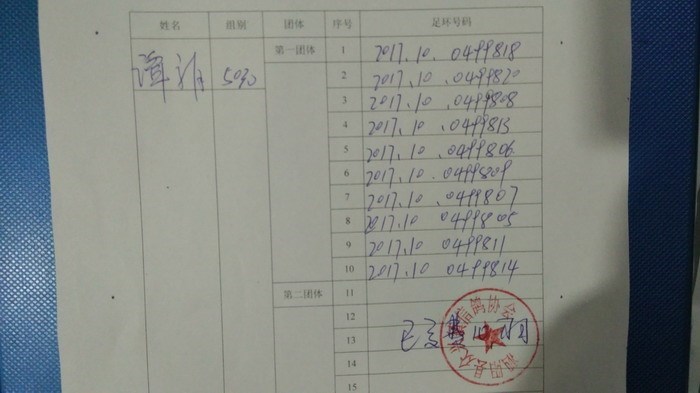 姓名 组别 团体 序号 足环号码
谭 5030 第一团体 1 2017.10. 0499818
2 2017.10. 0499820
3 2017.10. 0499808
4 2017.10. 0499813
5 2017.10. 0499806
6 2017.10. 0499809
7 2017.10. 0499807
8 2017.10 0499805
9 2017.10 0499811
10 2017.10 0499814
第二团体 11
12
13 已交
14
15
信鸽协会